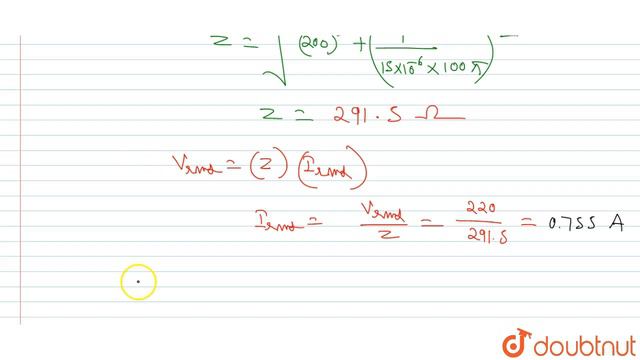 Z = √(200)² + (1 / 15×10⁻⁶ × 100π)²
Z = 291.5 Ω
Vrms = (Z) (Irms)
Irms = Vrms / Z = 220 / 291.5 = 0.755 A
doubtnut